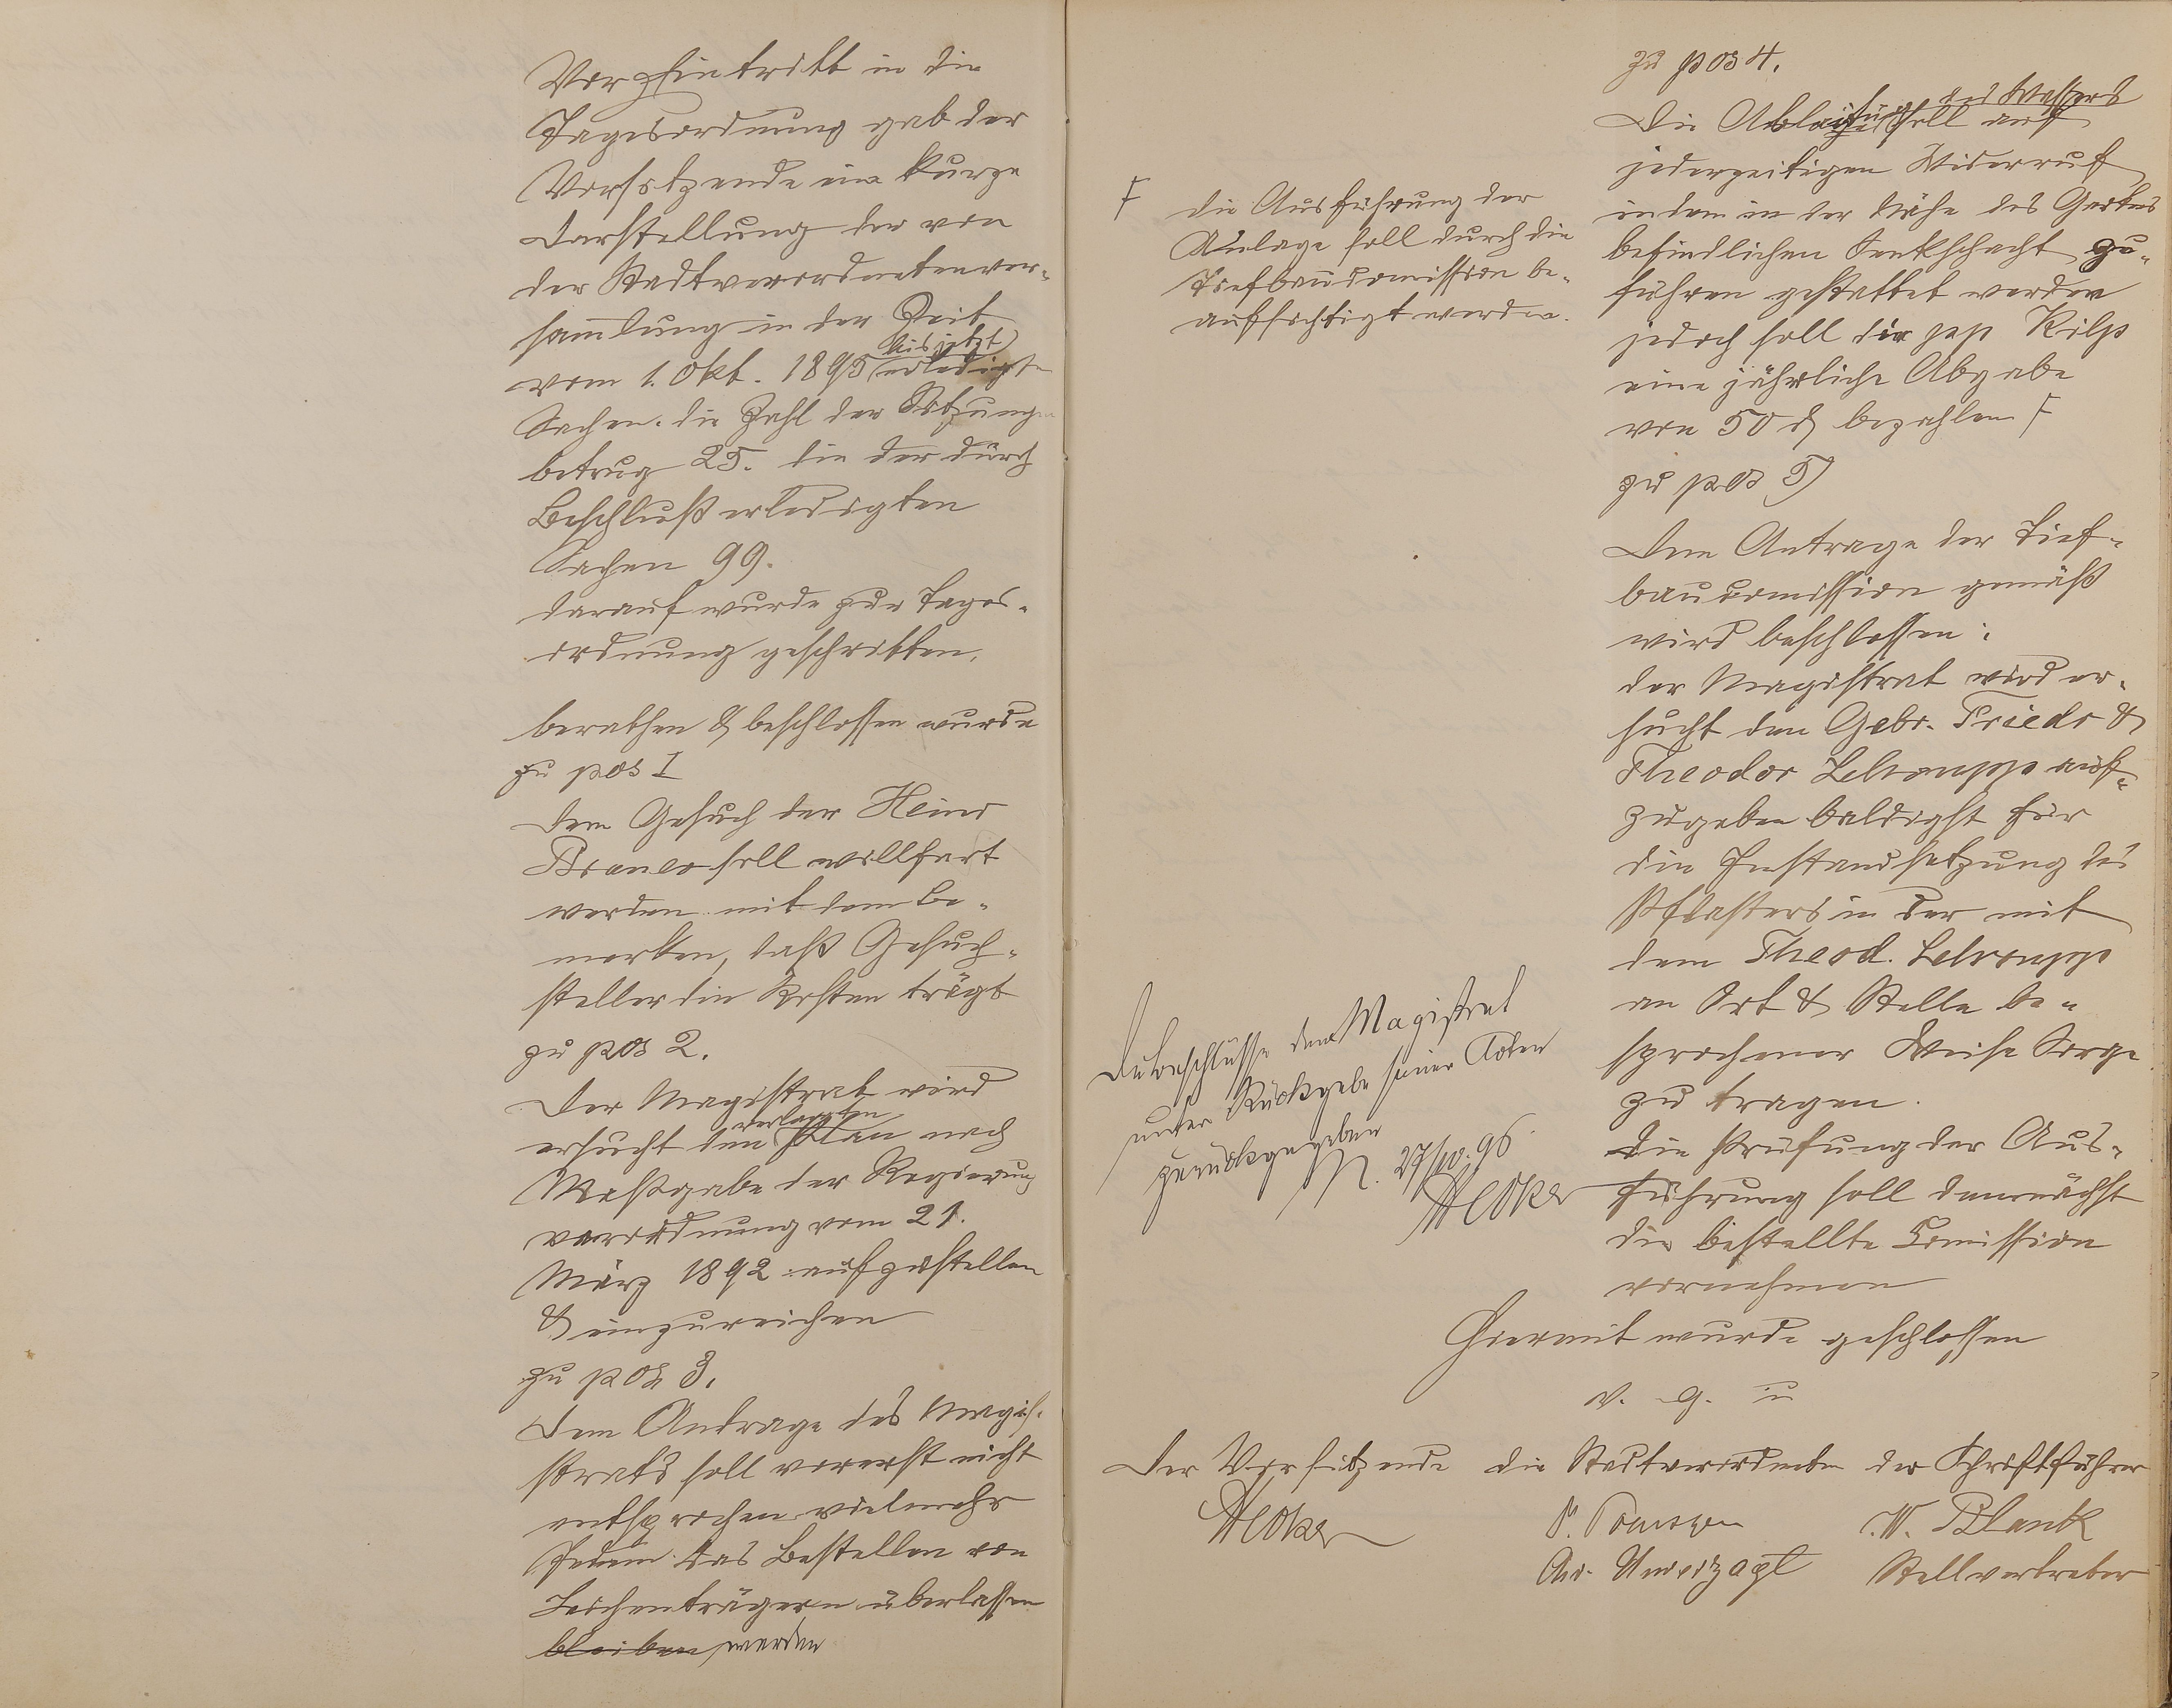 Vor Eintritt in die
Tagesordnung gab der
Vorsitzende eine kurze
Darstellung der von
der Stadtverordnetenver-
sammlung in der Zeit
vom 1. Okt. 1895 bis jetzt erledigten
Sachen. die Zahl der Sitzungen
betrug 25. die der durch
Beschluß erledigten
Sachen 99.
darauf wurde zur Tages-
ordnung geschritten.
berathen & beschlossen wurde
zu pos I
Dem Gesuch der Heinr
soll willfart
werden mit dem Be-
merken, daß Gesuch-
steller die Kosten trägt
zu pos 2.
Der Magistrat wird
ersucht den verlangten Plan nach
Maßgabe der Regierungs
verordnung vom 21.
März 1892 aufzustellen
& einzureichen
zu pos 3.
Dem Antrage des Magis-
strats soll vorerst nicht
entsprochen vielmehr
Jedem das Bestellen von
Leichenträgern überlassen
bleiben werden
zu pos 4.
Die Ableitung des Wassers soll auf
jederzeitigen Widerruf
in dem in der Nähe des Gartens
befindlichen Senkschacht zu-
führen gestattet werden
jedoch soll der pp Kilp
eine jährliche Abgabe
von 50 ₰ bezahlen F
F die Ausführung der
Anlage soll durch die
Tiefbaucomission be-
aufsichtigt werden.
zu pos 5)
Dem Antrage der Tief-
baucomission gemäß
wird beschlossen:
der Magistrat wird er-
sucht den Gebr. Friedr &
Theodor auf-
zugeben baldigst für
die Instandsetzung des
Pflasters in der mit
dem Theod.
an Ort & Stelle be-
sprochener Weise Sorge
zu tragen.
Die Prüfung der Aus-
führung soll demnächst
die bestellte Comission
vornehmen
Die Beschlüsse dem Magistrat
unter Rückgabe seiner Acten
zurückgegeben
N. 27/10. 96.
Hiermit wurde geschlossen
v. g. u
Der Vorsitzende die Stadtverordneten der Schriftführer
W. Blank
Stellvertreter